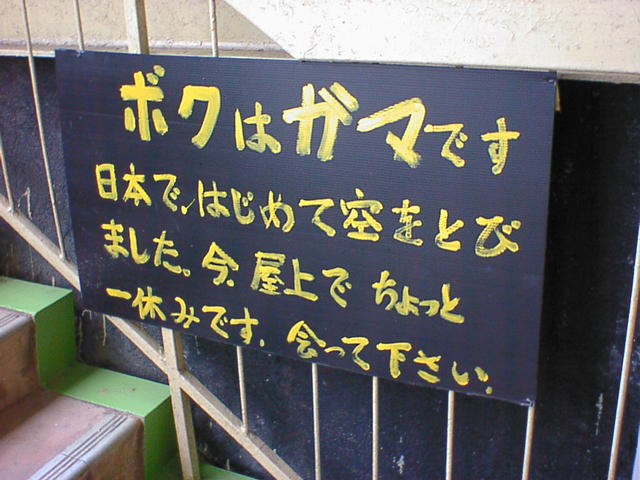 ボクはガマです
日本で、はじめて空をとび
ました。今、屋上でちょっと
一休みです。会って下さい。